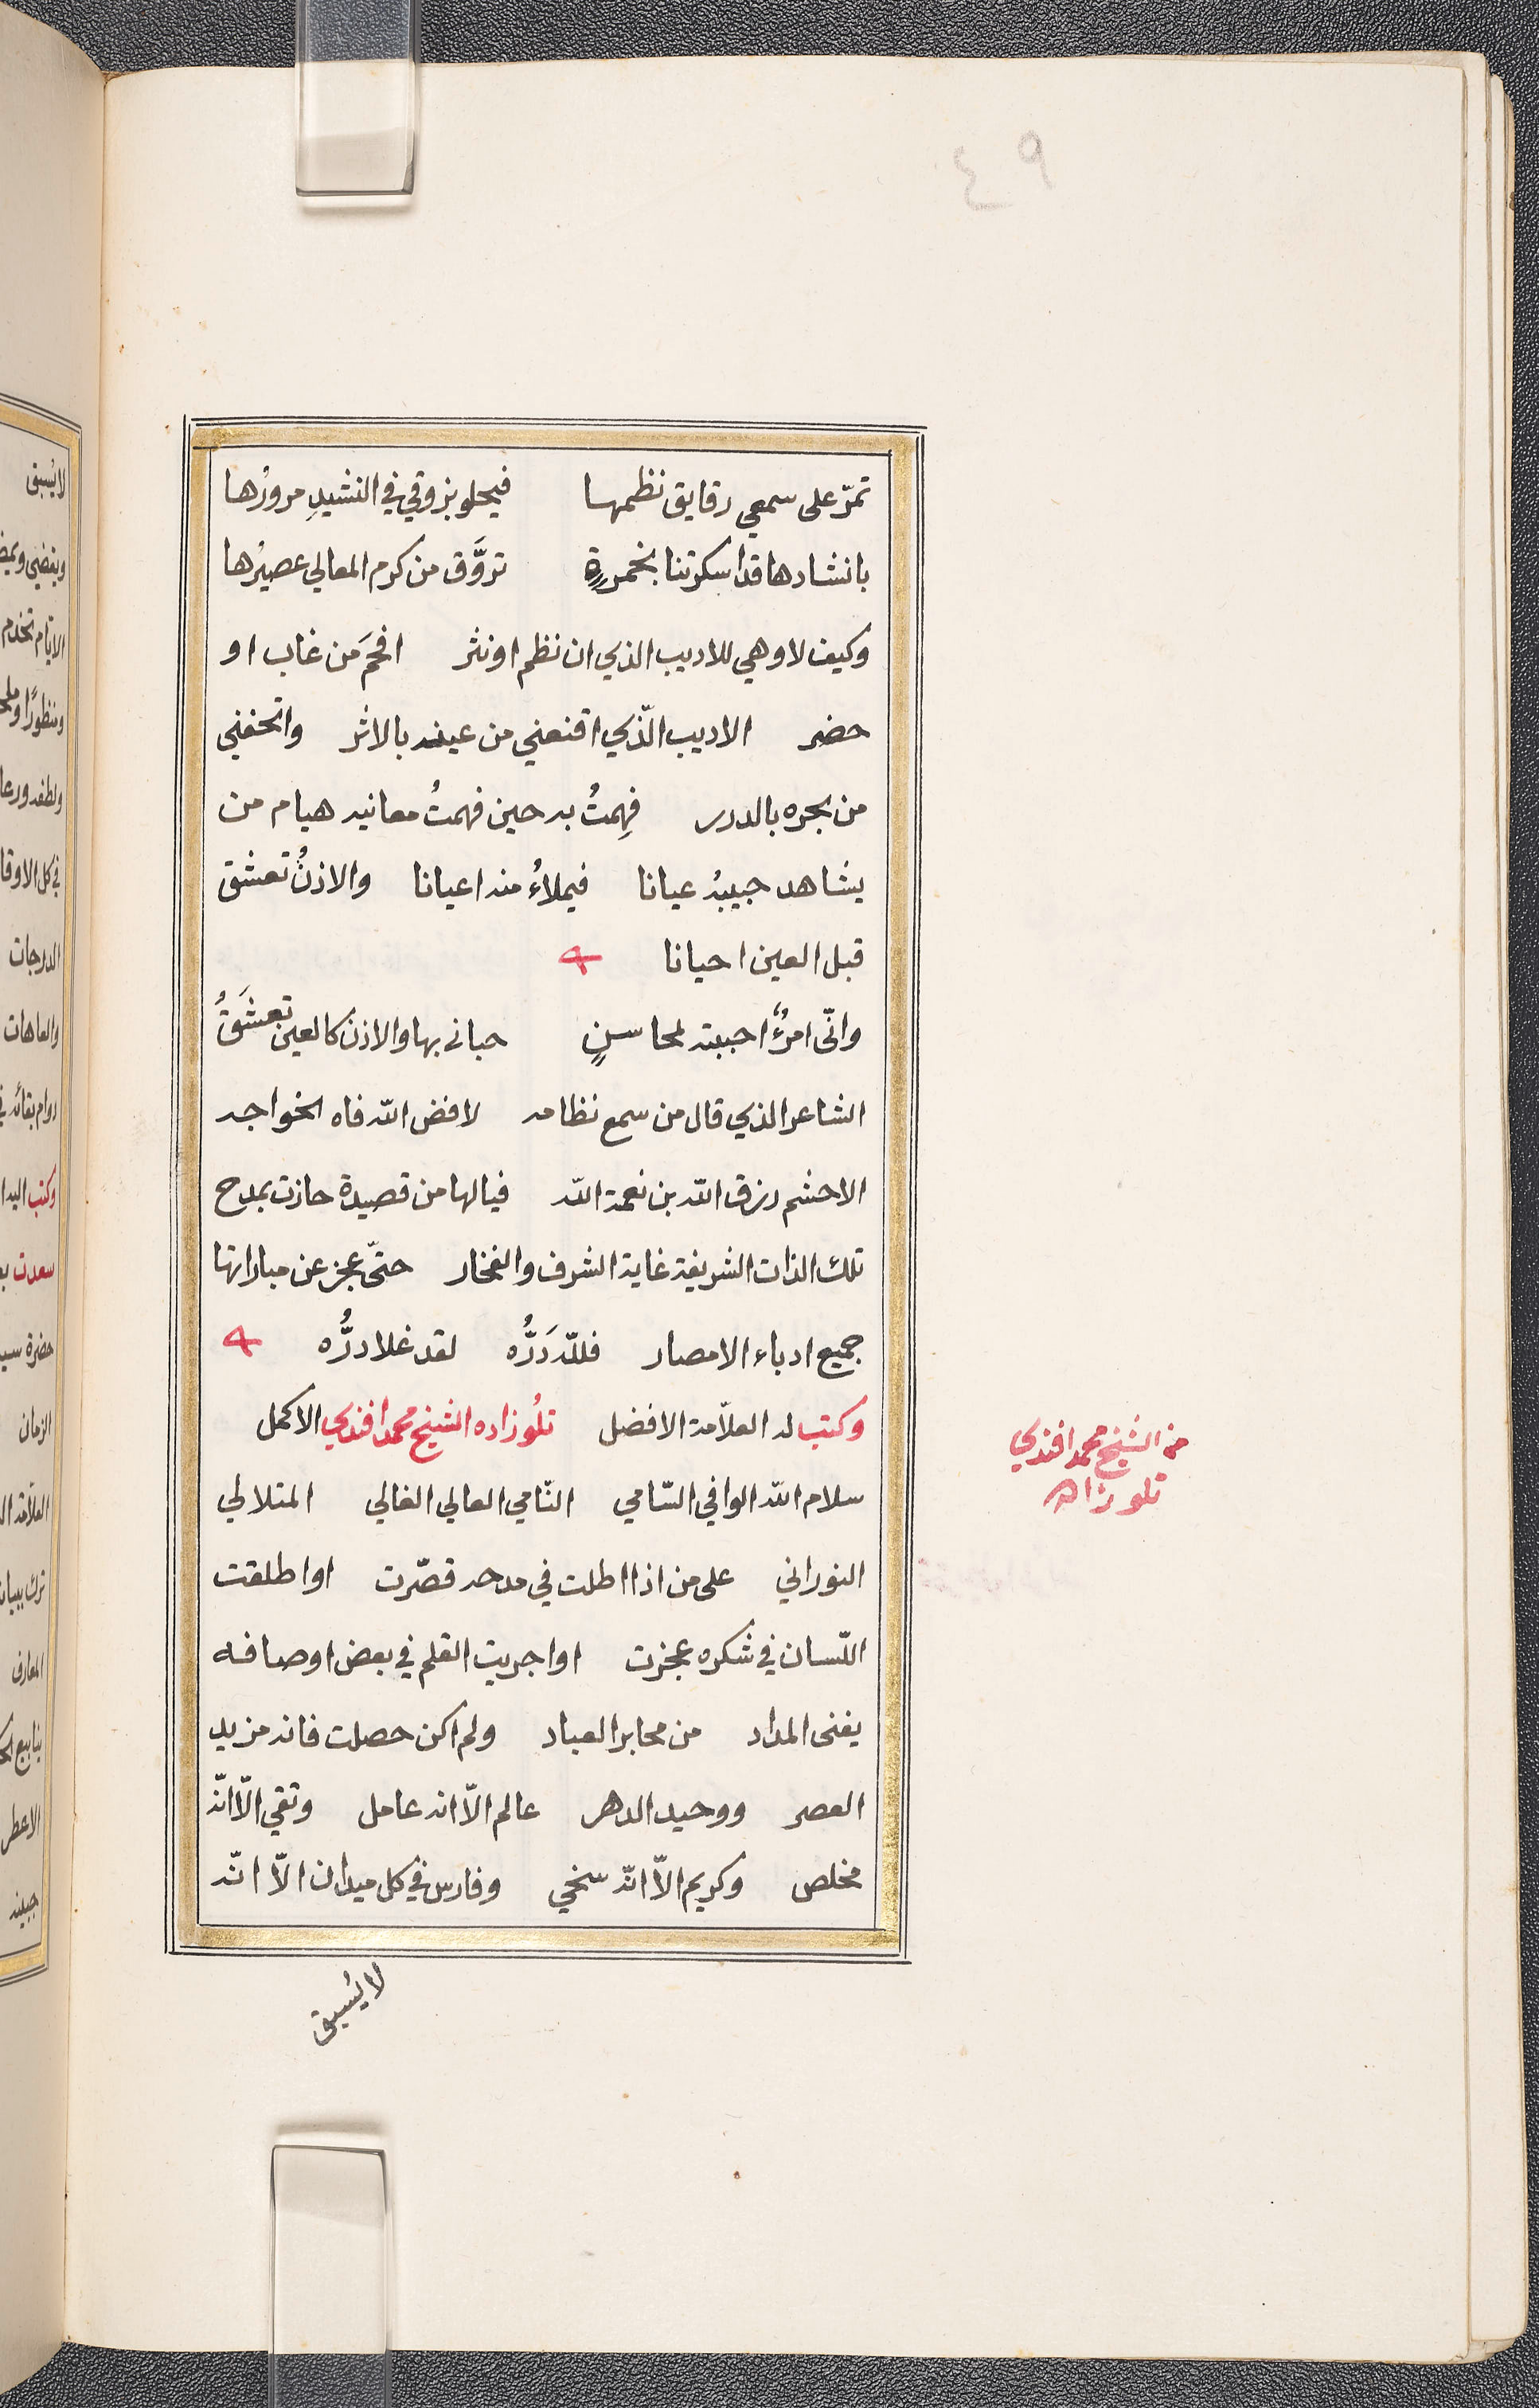 ٤٩
تمرّ على سمعي رقايق نظمها فيحلو بزوقي في النشيدِ مرورُها
بانشادها قد اسكرتنا بخمرةٍ تروَّق من كرم المعالي عصيرُها
وكيف لا وهي للاديب الذي ان نظم او نثر افحمَ من غاب او
حضر الاديب الّذي اقنعني من عينه بالاثر واتحفني
من بحره بالدرر فهِمتُ به حين فهمتُ معانيه هيام من
يشاهد حبيبهُ عيانا فيملاءُ منه اعيانا والاذنُ تعشق
قبل العين احيانا
وانّى امرُءٌ احببته لمحاسنٍ حبانى بها والاذن كالعين تعشَقُ
الشاعر الذي قال من سمع نظامه لا فض اللّه فاه الخواجه
الاحشم رزق اللّه بن نعمة اللّه فيا لها من قصيدة حازت بمدح
تلك الذات الشريفة غاية الشرف والفخار حتّى عجز عن مباراتها
جميع ادباء الامصار فللّه دَرُّه لقد غلا درُّه
وكتب له العلاّمة الافضل تلُو زاده الشيخ محمد افندي الاكمل
سلام اللّه الوافي السّامي النّامي العالي الغالي المتلالي
النوراني على من اذا اطلت في مدحه قصّرت او اطلقت
اللّسان في شكره عجزت او اجريت القلم في بعض اوصافه
يفنى المداد من محابر العباد ولم اكن حصلت فانه مزيد
العصر ووحيد الدهر عالم الاّ انه عامل وتقي الاّ انّه
مخلص وكريم الاّ انّه سخي وفارس في كل ميدان الاّ انّه
لا يُسبق
من الشيخ محمد افندي
تلو زاده